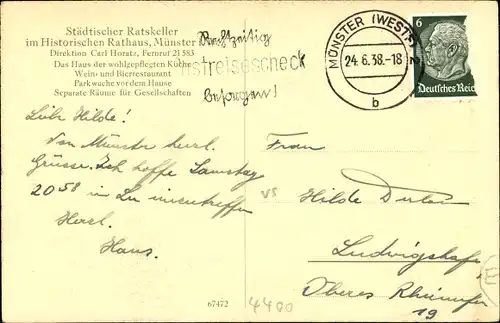 Städtischer Ratskeller
im Historischen Rathaus, Münster
Direktion Carl Horatz, Fernruf 21 583
Das Haus der wohlgepflegten Küche
Wein- und Bierrestaurant
Parkwache vor dem Hause
Separate Räume für Gesellschaften
Rechtzeitig
Reisescheck
besorgen!
MÜNSTER (WESTF)
24.6.38.-18
b
6
Deutsches Reich
Liebe Hilde!
Von Münster herzl.
Grüsse. Ich hoffe Samstag
20 58 in Lu einzutreffen
Herzl.
Hans.
Frau
Hilde
Ludwigshafen
Oberes Rheinufer
19
vs
67472
4400